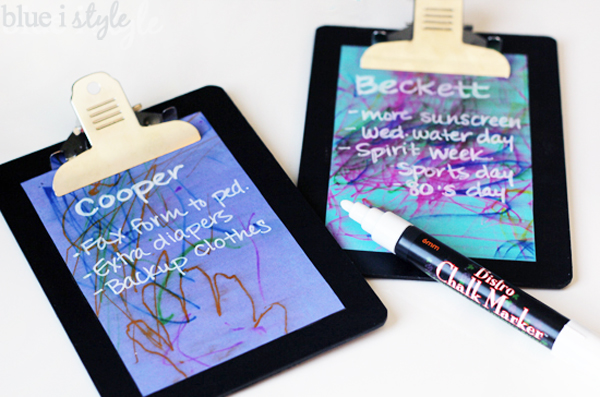 blue i style
Cooper
- Fax form to ped.
- Extra diapers
- Backup clothes
Beckett
- more sunscreen
- Wed. water day
- Spirit week
Sports day
80's day
6mm
Bistro
Chalk Marker